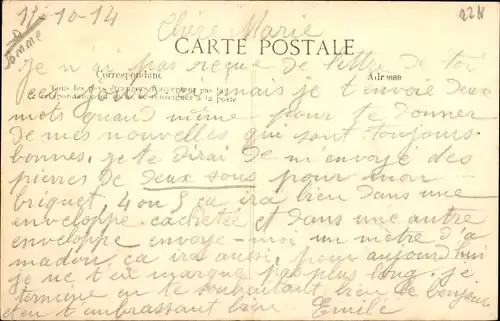 11-10-14
Somme
Chère Marie
CARTE POSTALE
Correspondance
Adresse
je n'ai pas reçue de lettre de toi
mais je t'envoie deux
mots quand même pour te donner
de mes nouvelles qui sont toujours
bonnes. je te dirai de m'envoyé des
pierres de deux sous pour mon
briquet, 4 ou 5 ça ira bien dans une
enveloppe cachetée et dans une autre
enveloppe envoye-moi un mètre d'a
madou, ça ira aussi, pour aujourd'hui
je ne t'en marque pas plus long. je
termine en te souhaitant bien le bonjour
en t'embrassant bien Emile